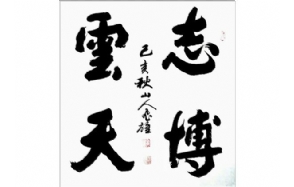 志博
雲天
己亥秋山人